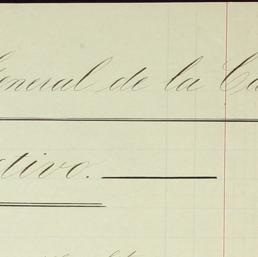 General de la Ca
ctivo.